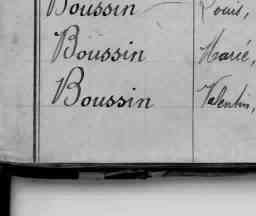 Boussin Louis,
Boussin Marie,
Boussin Valentin,